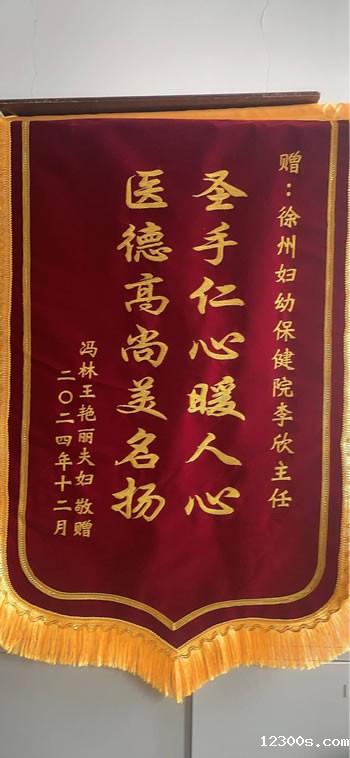 赠：徐州妇幼保健院李欣主任
圣手仁心暖人心
医德高尚美名扬
冯林王艳丽夫妇 敬赠
二〇二四年十二月
12300s.com